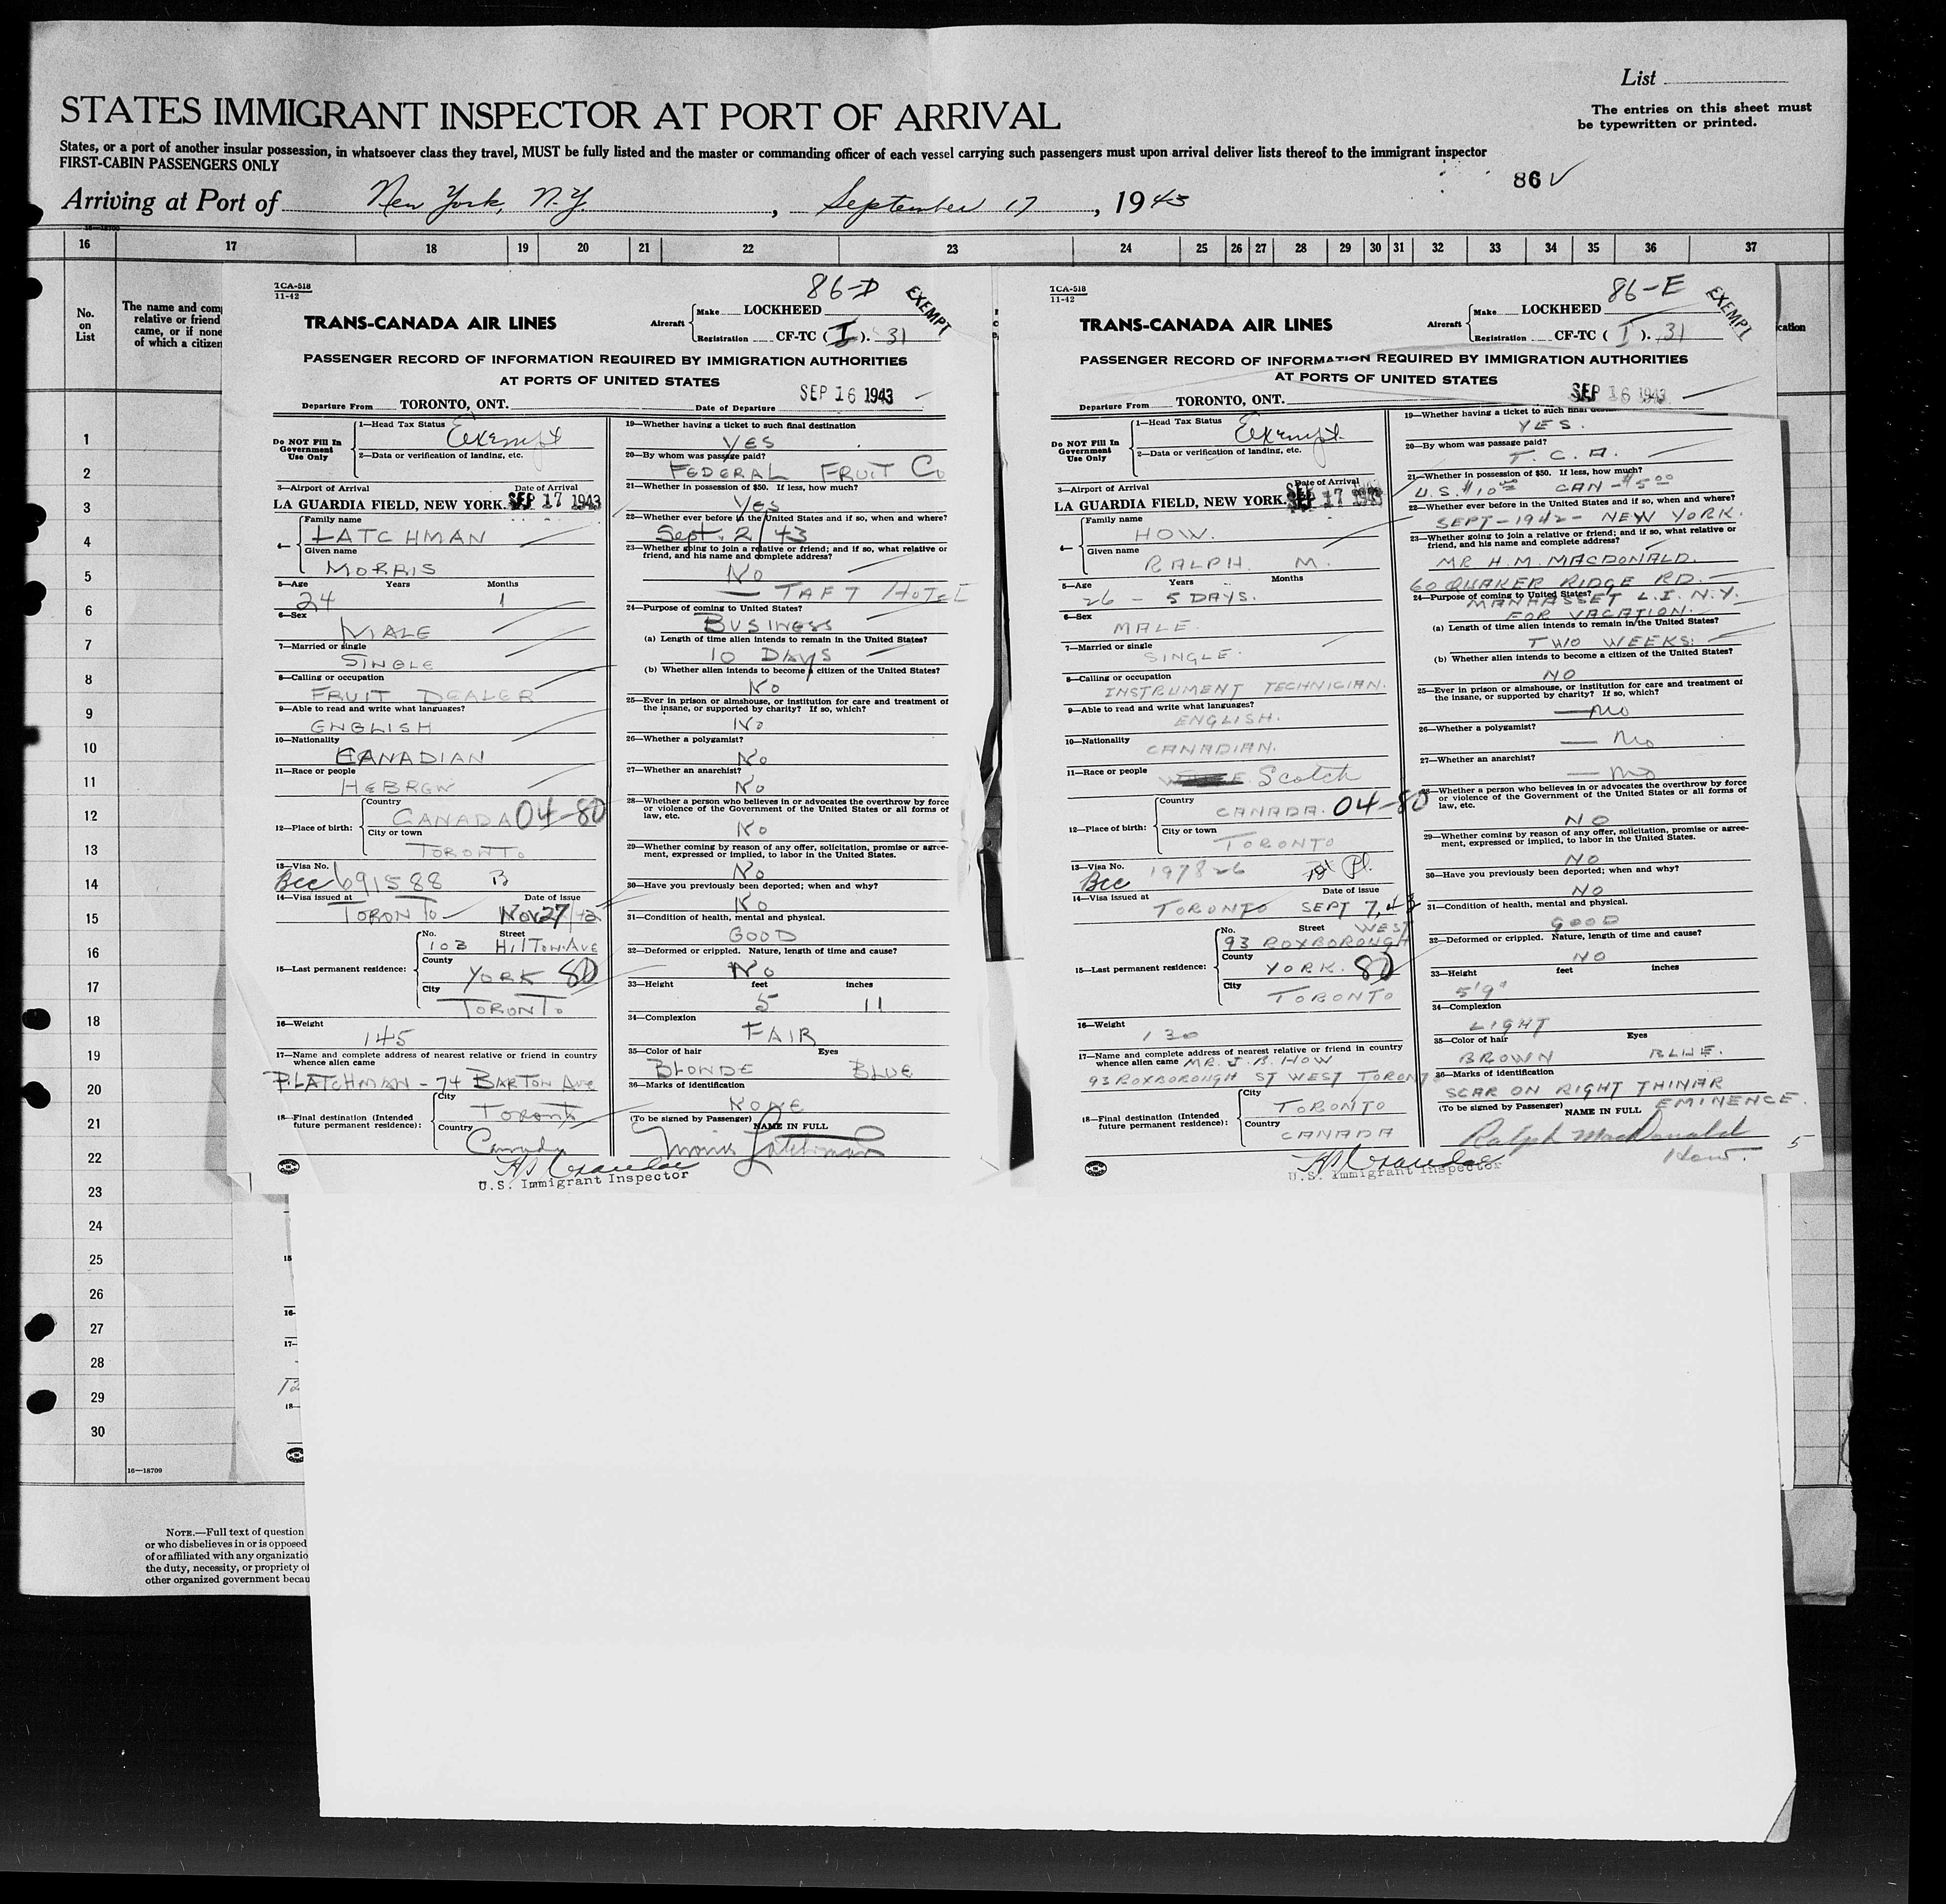 List
The entries on this sheet must
be typewritten or printed.
STATES IMMIGRANT INSPECTOR AT PORT OF ARRIVAL
States, or a port of another insular possession, in whatsoever class they travel, MUST be fully listed and the master or commanding officer of each vessel carrying such passengers must upon arrival deliver lists thereof to the immigrant inspector
FIRST-CABIN PASSENGERS ONLY
86 ✓
Arriving at Port of New York, N.Y., September 17, 1943
16 17 18 19 20 21 22 23 24 25 26 27 28 29 30 31 32 33 34 35 36 37
No.
on
List
The name and comp
relative or friend
came, or if none
of which a citizen
cation
1
2
3
4
5
6
7
8
9
10
11
12
13
14
15
16
17
18
19
20
21
22
23
24
25
26
27
28
29
30
16—18709
NOTE.—Full text of question
or who disbelieves in or is opposed
of or affiliated with any organizatio
the duty, necessity, or propriety of
other organized government becau
15
16-
17-
18-
TCA-518
11-42
86-D
EXEMPT
TRANS-CANADA AIR LINES
Aircraft Make LOCKHEED
Registration CF-TC (I). 31
PASSENGER RECORD OF INFORMATION REQUIRED BY IMMIGRATION AUTHORITIES
AT PORTS OF UNITED STATES
SEP 16 1943
Departure From TORONTO, ONT. Date of Departure
Do NOT Fill In
Government
Use Only
1—Head Tax Status Exempt
2—Data or verification of landing, etc.
3—Airport of Arrival Date of Arrival
LA GUARDIA FIELD, NEW YORK. SEP 17 1943
4—
Family name
LATCHMAN
Given name
MORRIS
5—Age Years Months
24 1
6—Sex
MALE
7—Married or single
SINGLE
8—Calling or occupation
FRUIT DEALER
9—Able to read and write what languages?
ENGLISH
10—Nationality
CANADIAN
11—Race or people
HEBREW
12—Place of birth:
Country
CANADA 04-80
City or town
TORONTO
13—Visa No.
Bcc 691588 B
14—Visa issued at Date of issue
TORONTO Nov 27/42
15—Last permanent residence:
No. Street
103 HILTON AVE
County
YORK 80
City
TORONTO
16—Weight
145
17—Name and complete address of nearest relative or friend in country
whence alien came
P. LATCHMAN - 74 BARTON AVE
18—Final destination (Intended
future permanent residence):
City
TORONTO
Country
Canada
19—Whether having a ticket to such final destination
YES
20—By whom was passage paid?
FEDERAL FRUIT Co
21—Whether in possession of $50. If less, how much?
YES
22—Whether ever before in the United States and if so, when and where?
Sept. 2/43
23—Whether going to join a relative or friend; and if so, what relative or
friend, and his name and complete address?
NO
— TAFT HOTEL
24—Purpose of coming to United States?
BUSINESS
(a) Length of time alien intends to remain in the United States?
10 DAYS
(b) Whether alien intends to become a citizen of the United States?
NO
25—Ever in prison or almshouse, or institution for care and treatment of
the insane, or supported by charity? If so, which?
NO
26—Whether a polygamist?
NO
27—Whether an anarchist?
NO
28—Whether a person who believes in or advocates the overthrow by force
or violence of the Government of the United States or all forms of
law, etc.
NO
29—Whether coming by reason of any offer, solicitation, promise or agree-
ment, expressed or implied, to labor in the United States.
NO
30—Have you previously been deported; when and why?
NO
31—Condition of health, mental and physical.
GOOD
32—Deformed or crippled. Nature, length of time and cause?
NO
33—Height feet inches
5 11
34—Complexion
FAIR
35—Color of hair Eyes
BLONDE BLUE
36—Marks of identification
NONE
(To be signed by Passenger) NAME IN FULL
Morris Latchman
U.S. Immigrant Inspector
TCA-518
11-42
86-E
EXEMPT
TRANS-CANADA AIR LINES
Aircraft Make LOCKHEED
Registration CF-TC (I). 31
PASSENGER RECORD OF INFORMATION REQUIRED BY IMMIGRATION AUTHORITIES
AT PORTS OF UNITED STATES
SEP 16 1943
Departure From TORONTO, ONT. Date of Departure
Do NOT Fill In
Government
Use Only
1—Head Tax Status Exempt
2—Data or verification of landing, etc.
3—Airport of Arrival Date of Arrival
LA GUARDIA FIELD, NEW YORK. SEP 17 1943
4—
Family name
HOW.
Given name
RALPH M.
5—Age Years Months
26 - 5 DAYS.
6—Sex
MALE.
7—Married or single
SINGLE.
8—Calling or occupation
INSTRUMENT TECHNICIAN.
9—Able to read and write what languages?
ENGLISH.
10—Nationality
CANADIAN.
11—Race or people
Scotch
12—Place of birth:
Country
CANADA. 04-80
City or town
TORONTO
13—Visa No.
Bcc 197826 Pl.
14—Visa issued at Date of issue
TORONTO SEPT 7, 43
15—Last permanent residence:
No. Street WEST
93 ROXBOROUGH
County
YORK. 80
City
TORONTO
16—Weight
130
17—Name and complete address of nearest relative or friend in country
whence alien came MR. J. B. HOW
93 ROXBOROUGH ST WEST TORONTO
18—Final destination (Intended
future permanent residence):
City
TORONTO
Country
CANADA
19—Whether having a ticket to such final
YES.
20—By whom was passage paid?
T. C. A.
21—Whether in possession of $50. If less, how much?
U.S. $10.00 CAN - $5.00
22—Whether ever before in the United States and if so, when and where?
SEPT-1942- NEW YORK.
23—Whether going to join a relative or friend; and if so, what relative or
friend, and his name and complete address?
MR H. M. MACDONALD.
60 QUAKER RIDGE RD.
24—Purpose of coming to United States?
MANHASSET L.I. N.Y.
FOR VACATION.
(a) Length of time alien intends to remain in the United States?
TWO WEEKS.
(b) Whether alien intends to become a citizen of the United States?
NO
25—Ever in prison or almshouse, or institution for care and treatment of
the insane, or supported by charity? If so, which?
— no
26—Whether a polygamist?
— no
27—Whether an anarchist?
— no
28—Whether a person who believes in or advocates the overthrow by force
or violence of the Government of the United States or all forms of
law, etc.
NO
29—Whether coming by reason of any offer, solicitation, promise or agree-
ment, expressed or implied, to labor in the United States.
NO
30—Have you previously been deported; when and why?
NO
31—Condition of health, mental and physical.
GOOD
32—Deformed or crippled. Nature, length of time and cause?
NO
33—Height feet inches
5'9"
34—Complexion
LIGHT
35—Color of hair Eyes
BROWN BLUE.
36—Marks of identification
SCAR ON RIGHT THINAR
EMINENCE.
(To be signed by Passenger) NAME IN FULL
Ralph MacDonald
How.
5
U.S. Immigrant Inspector